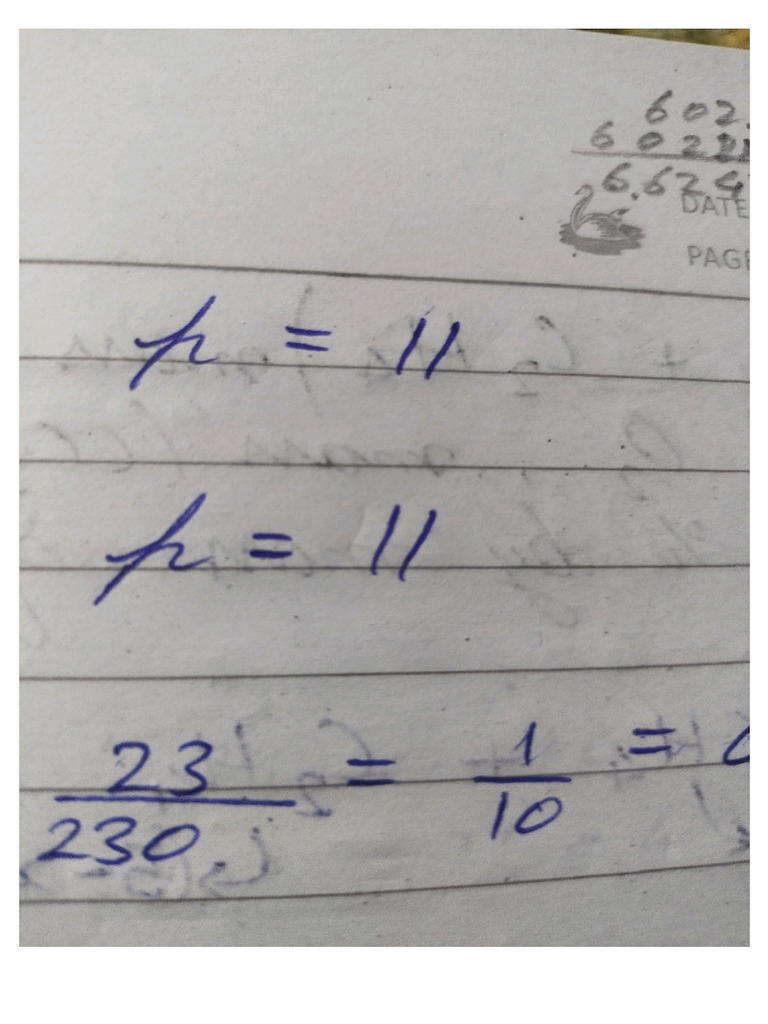 602.
6022
6.624
DATE
PAGE
p = 11
p = 11
23/230 = 1/10 =